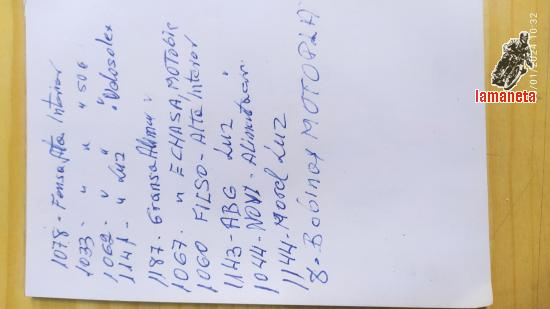 1078 - Femsa Alta Interior
1033 - " " " 50 E
1062 - " " "
1141 - " Luz " Velosolex
1187 - Gransa Alim "
1067 - " ECHASA, MOTobic
1060 FILSO - Alta Interior
1143 - ABG LUZ
1044 - NOVI - Alimentación
1144 - Morel LUZ
8 - Bobinas MOTOPLAT
/01/2024 10:32
lamaneta